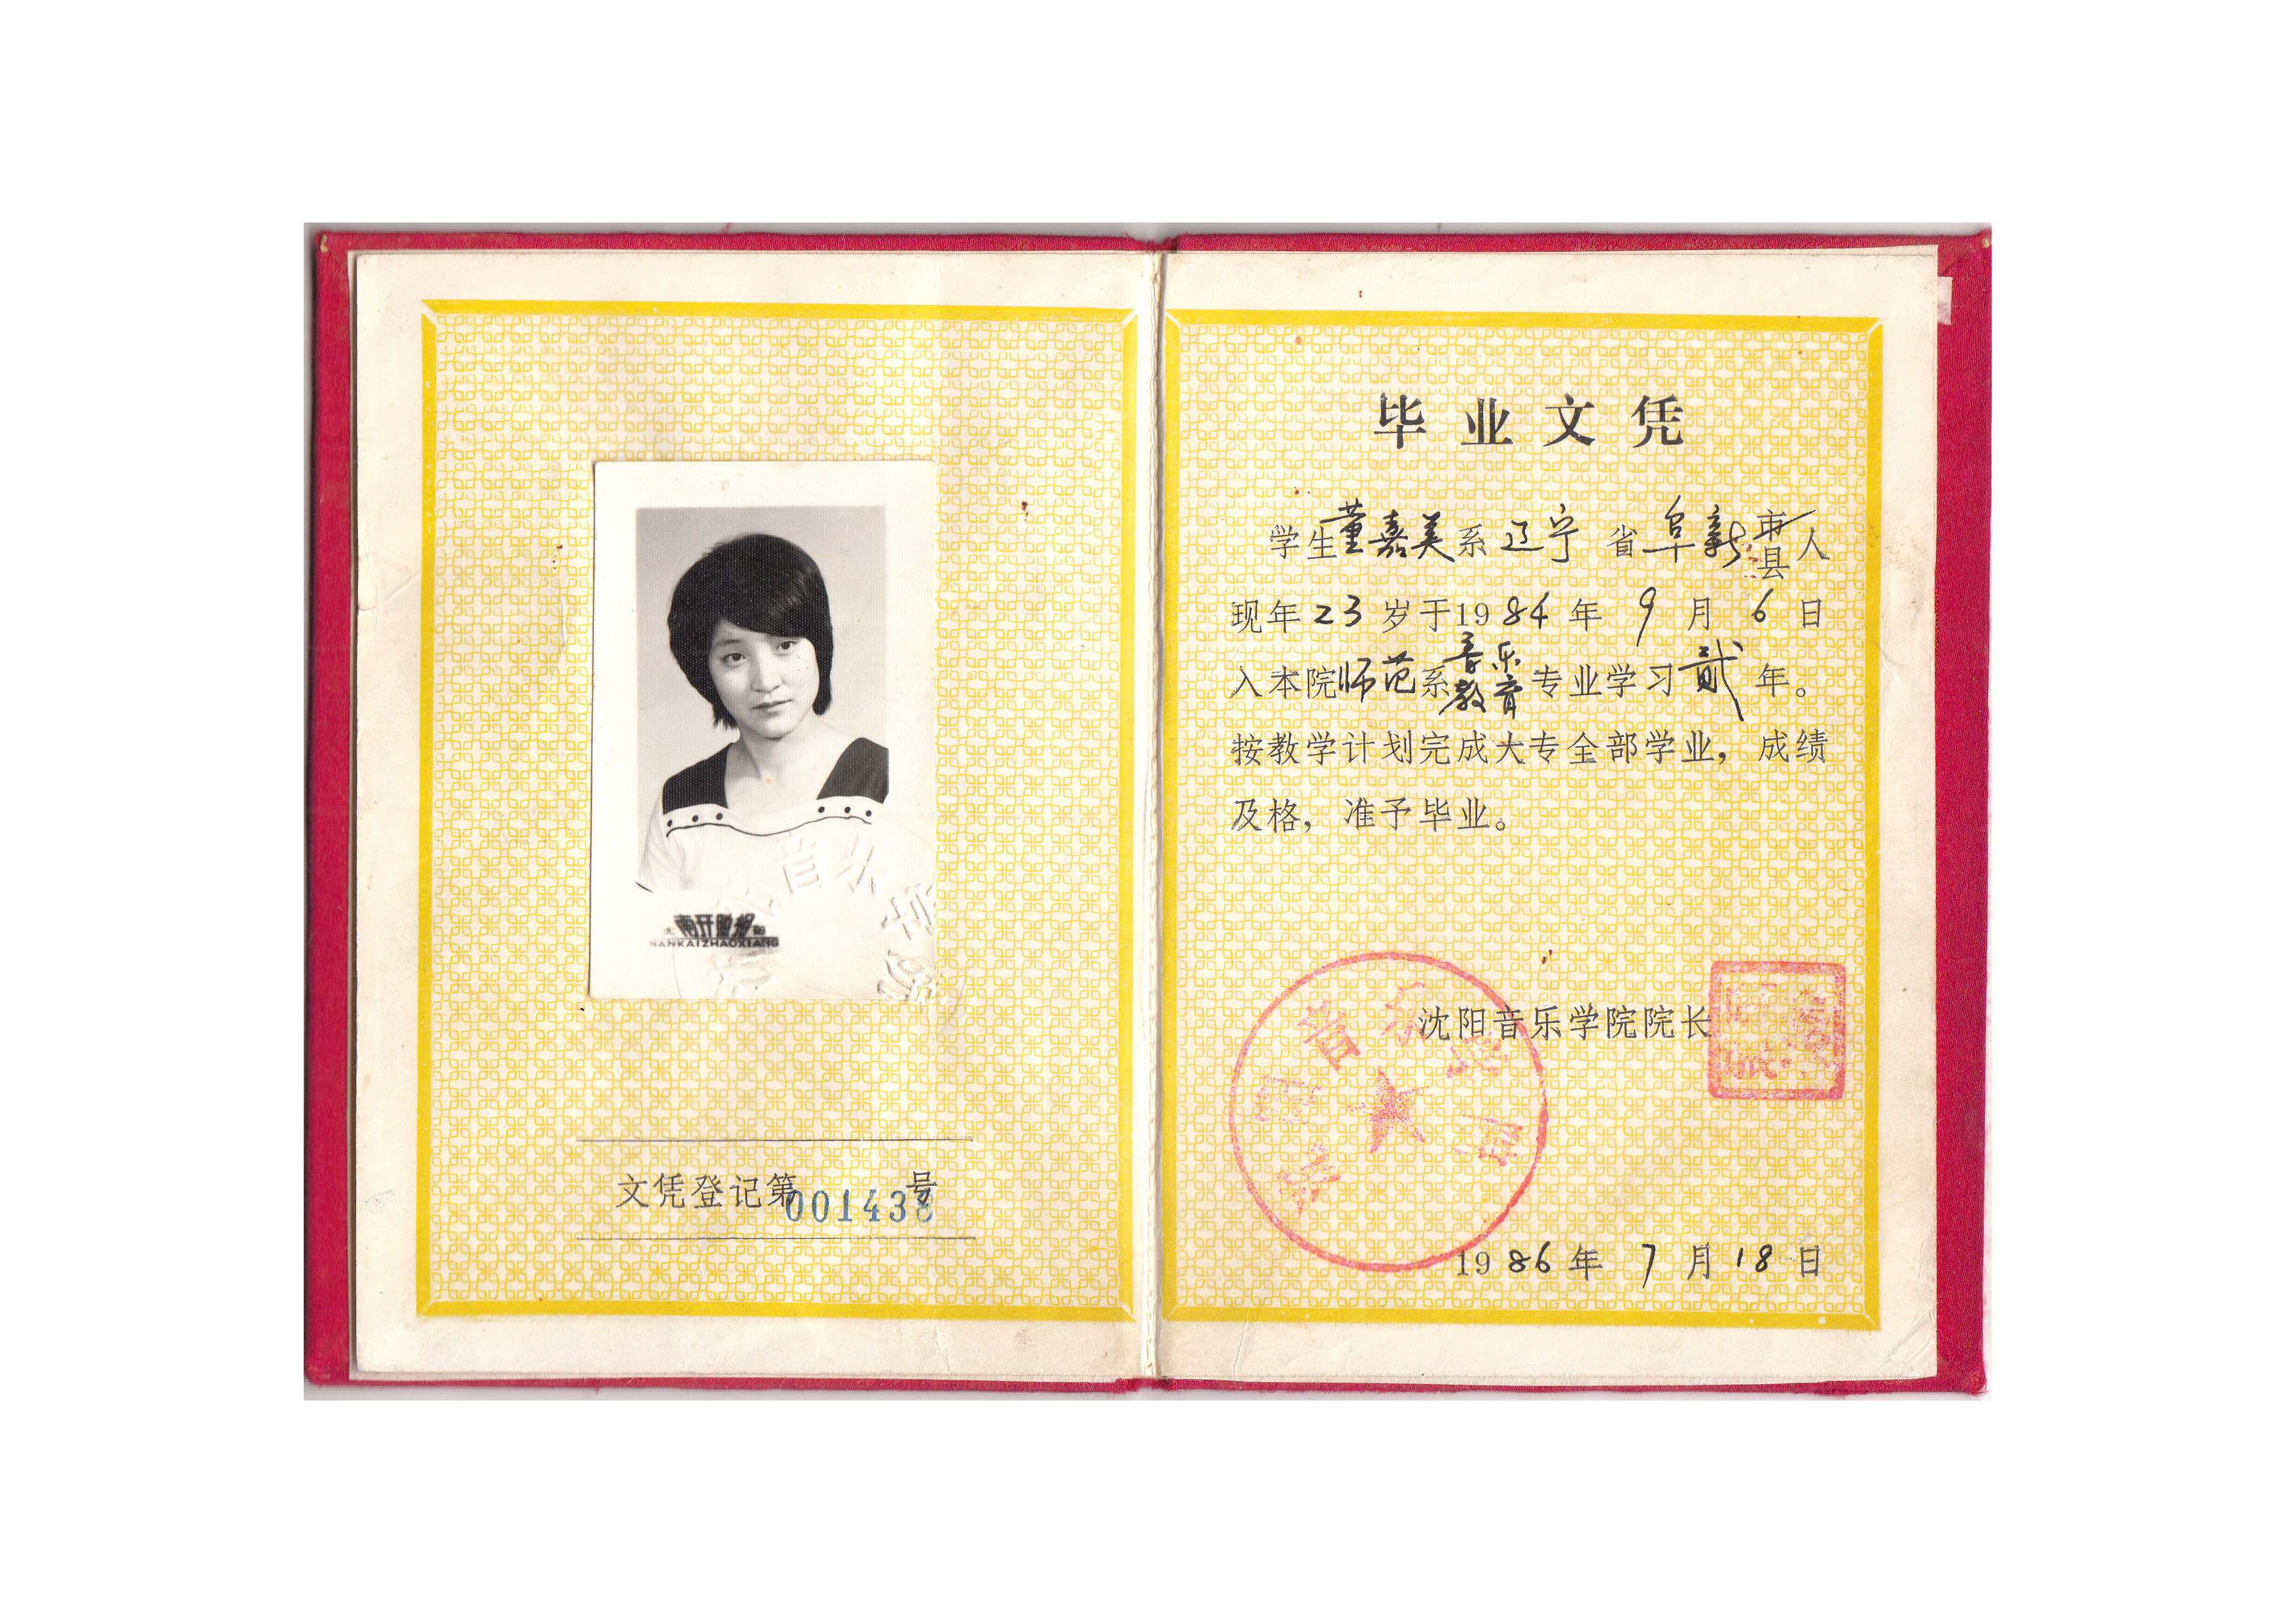 音乐学
南开照相
NANKAIZHAOXIANG
文凭登记第001438号
毕业文凭
学生董嘉美系辽宁省阜新市县人
现年23岁于1984年9月6日
入本院师范系音乐教育专业学习贰年。
按教学计划完成大专全部学业，成绩
及格，准予毕业。
沈阳音乐学院院长
沈阳音乐学院
1986年7月18日